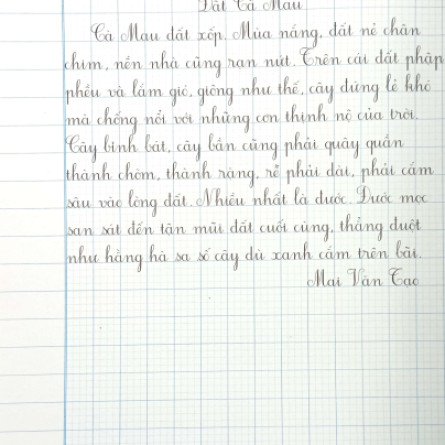 Đất Cà Mau
Cà Mau đất xốp. Mùa nắng, đất nẻ chân
chim, nền nhà cũng rạn nứt. Trên cái đất phập
phều và lắm gió, giông như thế, cây đứng lẻ khó
mà chống nổi với những cơn thịnh nộ của trời.
Cây bình bát, cây bần cũng phải quây quần
thành chòm, thành rặng, rễ phải dài, phải cắm
sâu vào lòng đất. Nhiều nhất là đước. Đước mọc
san sát đến tận mũi đất cuối cùng, thẳng đuột
như hằng hà sa số cây dù xanh cắm trên bãi.
Mai Văn Tạo